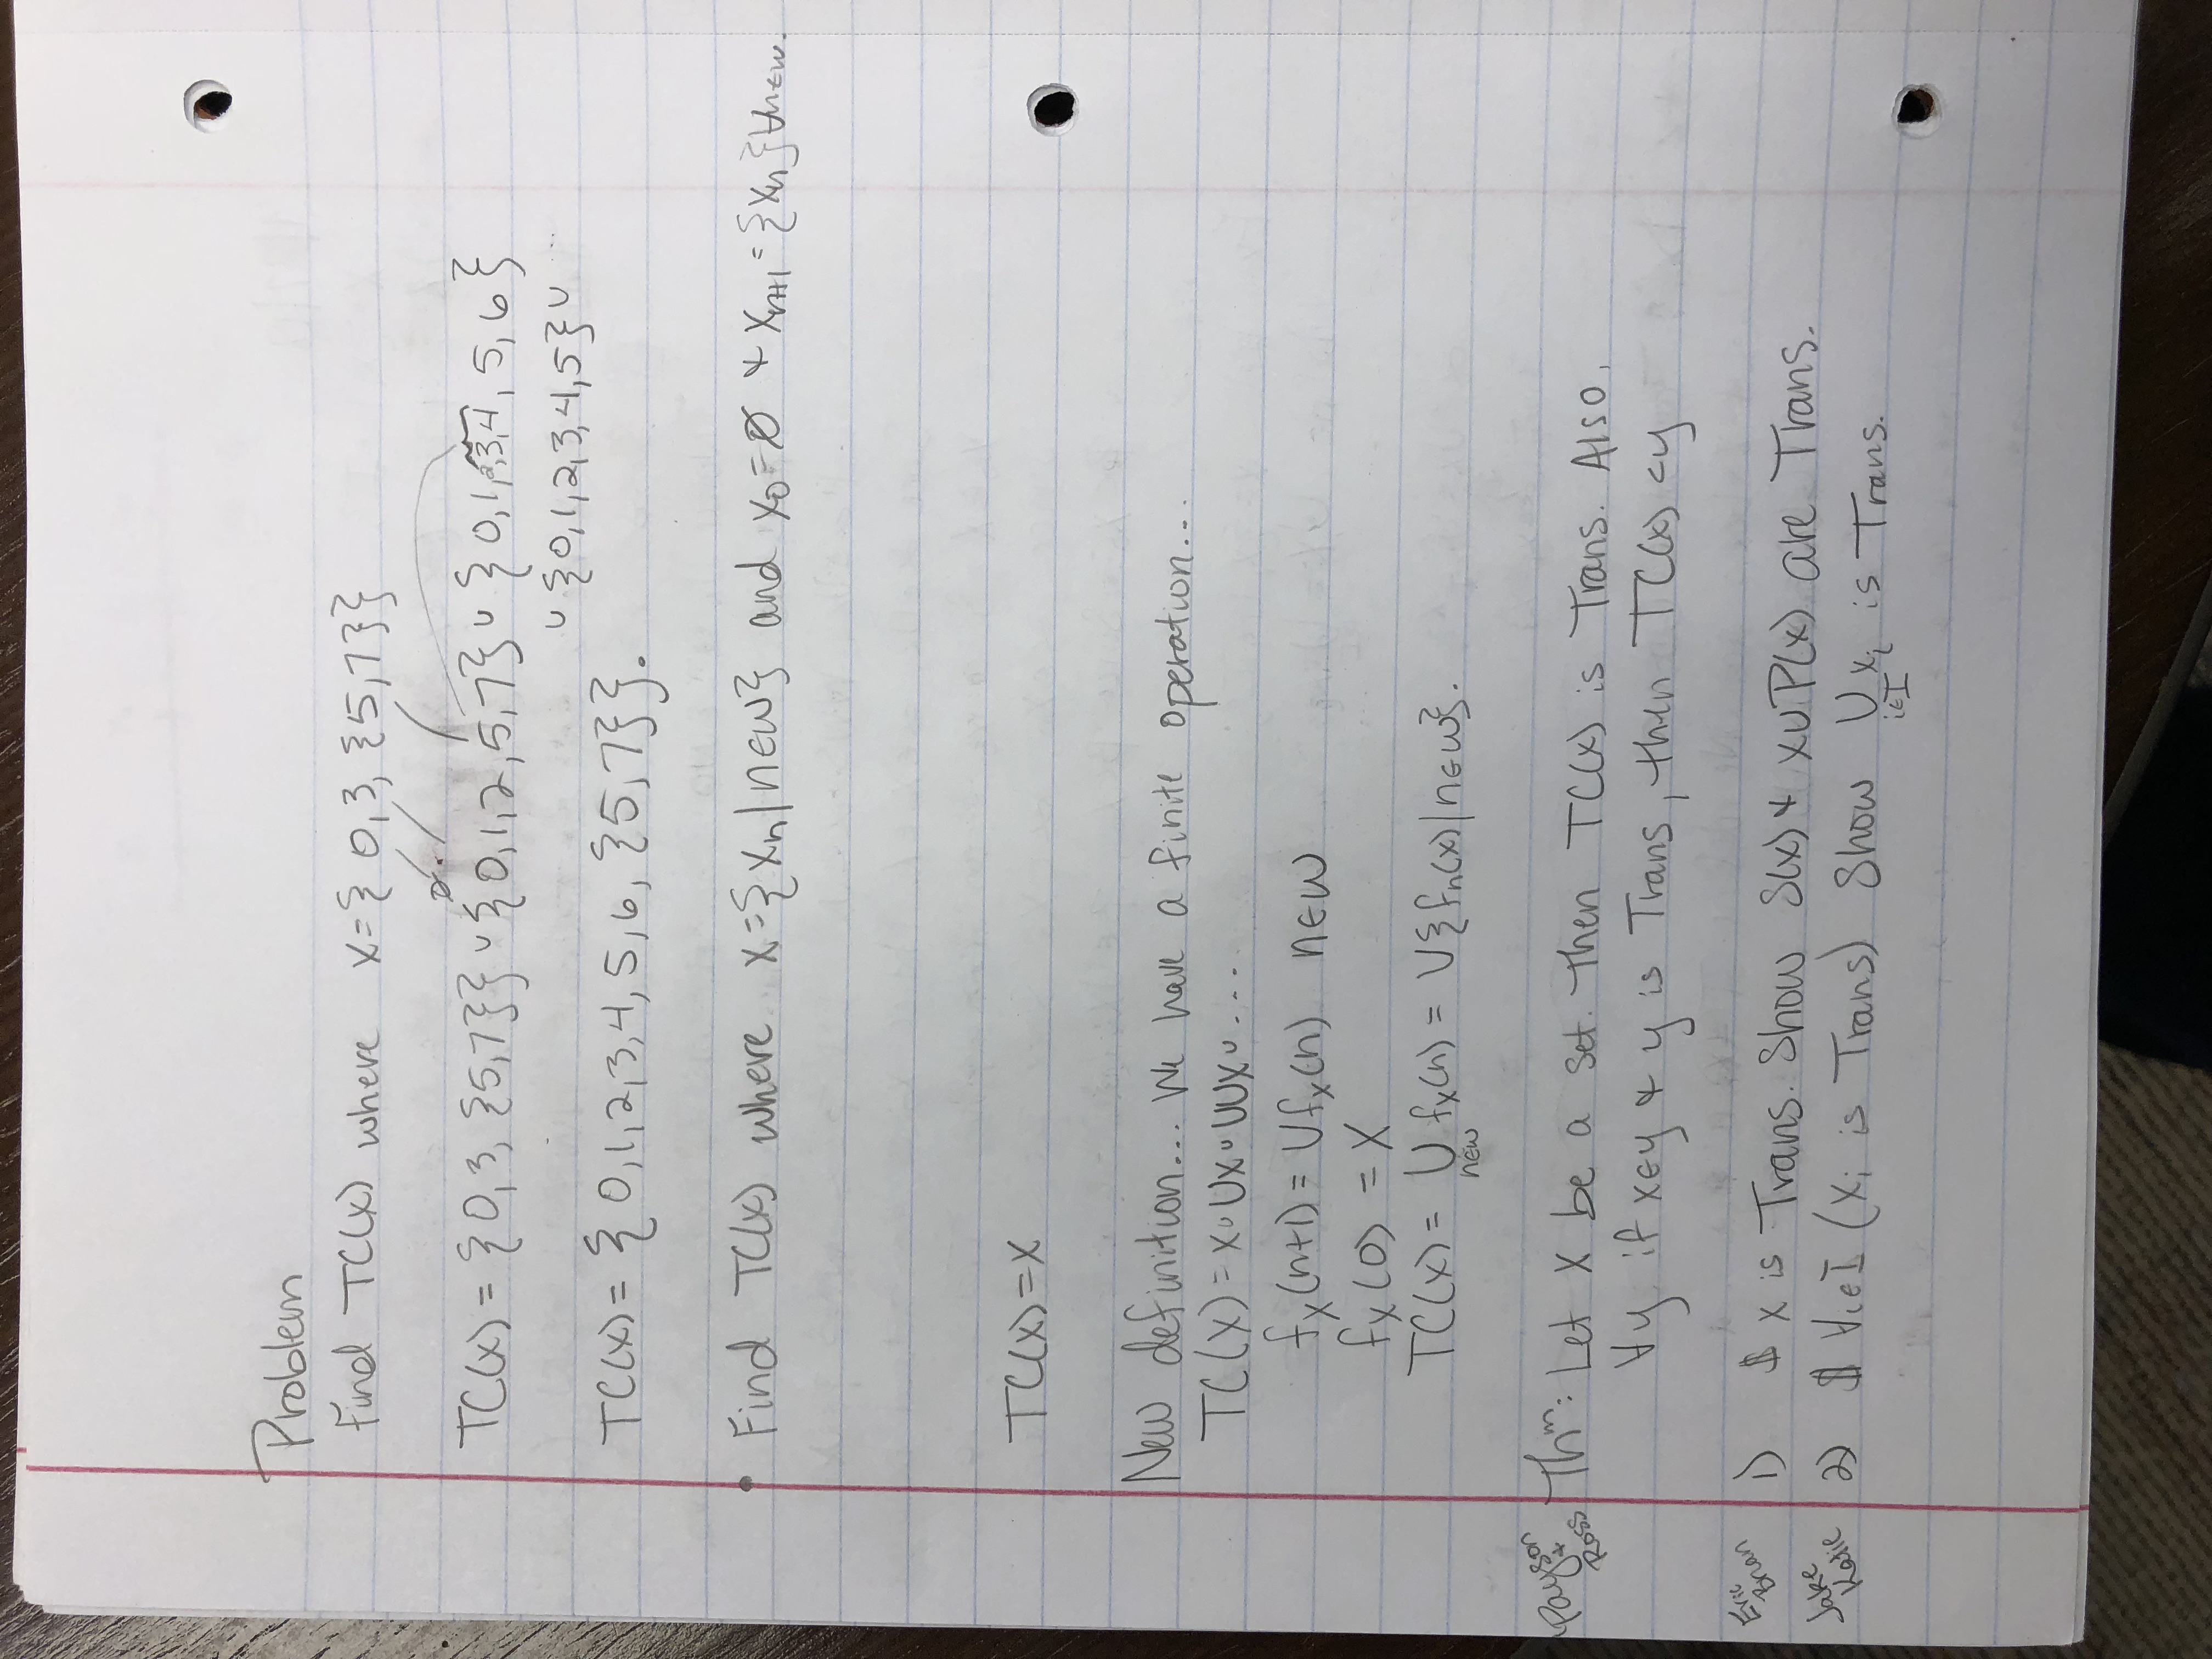 Problem
Find TC(x) where x={ 0,3, {5,7}}
∅
TC(x) = {0,3, {5,7}} ∪ {0,1,2,5,7} ∪ {0,1,2,3,4,5,6}
∪ {0,1,2,3,4,5} ∪ ...
TC(x) = { 0,1,2,3,4,5,6, {5,7}}.
• Find TC(x) where x={xₙ|n∈ω} and x₀=∅ & xₙ₊₁={xₙ} ∀n∈ω.
TC(x)=x
New definition... We have a finite operation...
TC(x) = x ∪ ∪x ∪ ∪∪x ∪ ....
fₓ(n+1) = ∪fₓ(n) n∈ω
fₓ(0) = x
TC(x) = ∪ fₓ(n) = ∪{fₙ(x)|n∈ω}.
n∈ω
Payson + Ross
Thᵐ: Let x be a set. Then TC(x) is Trans. Also,
∀y if x∈y & y is Trans, then TC(x) ⊂ y
Eric Brian
1) $ x is Trans. Show S(x) & x∪P(x) are Trans.
Jake Katie
2) $ ∀i∈I (xᵢ is Trans) Show ∪ xᵢ is Trans.
i∈I